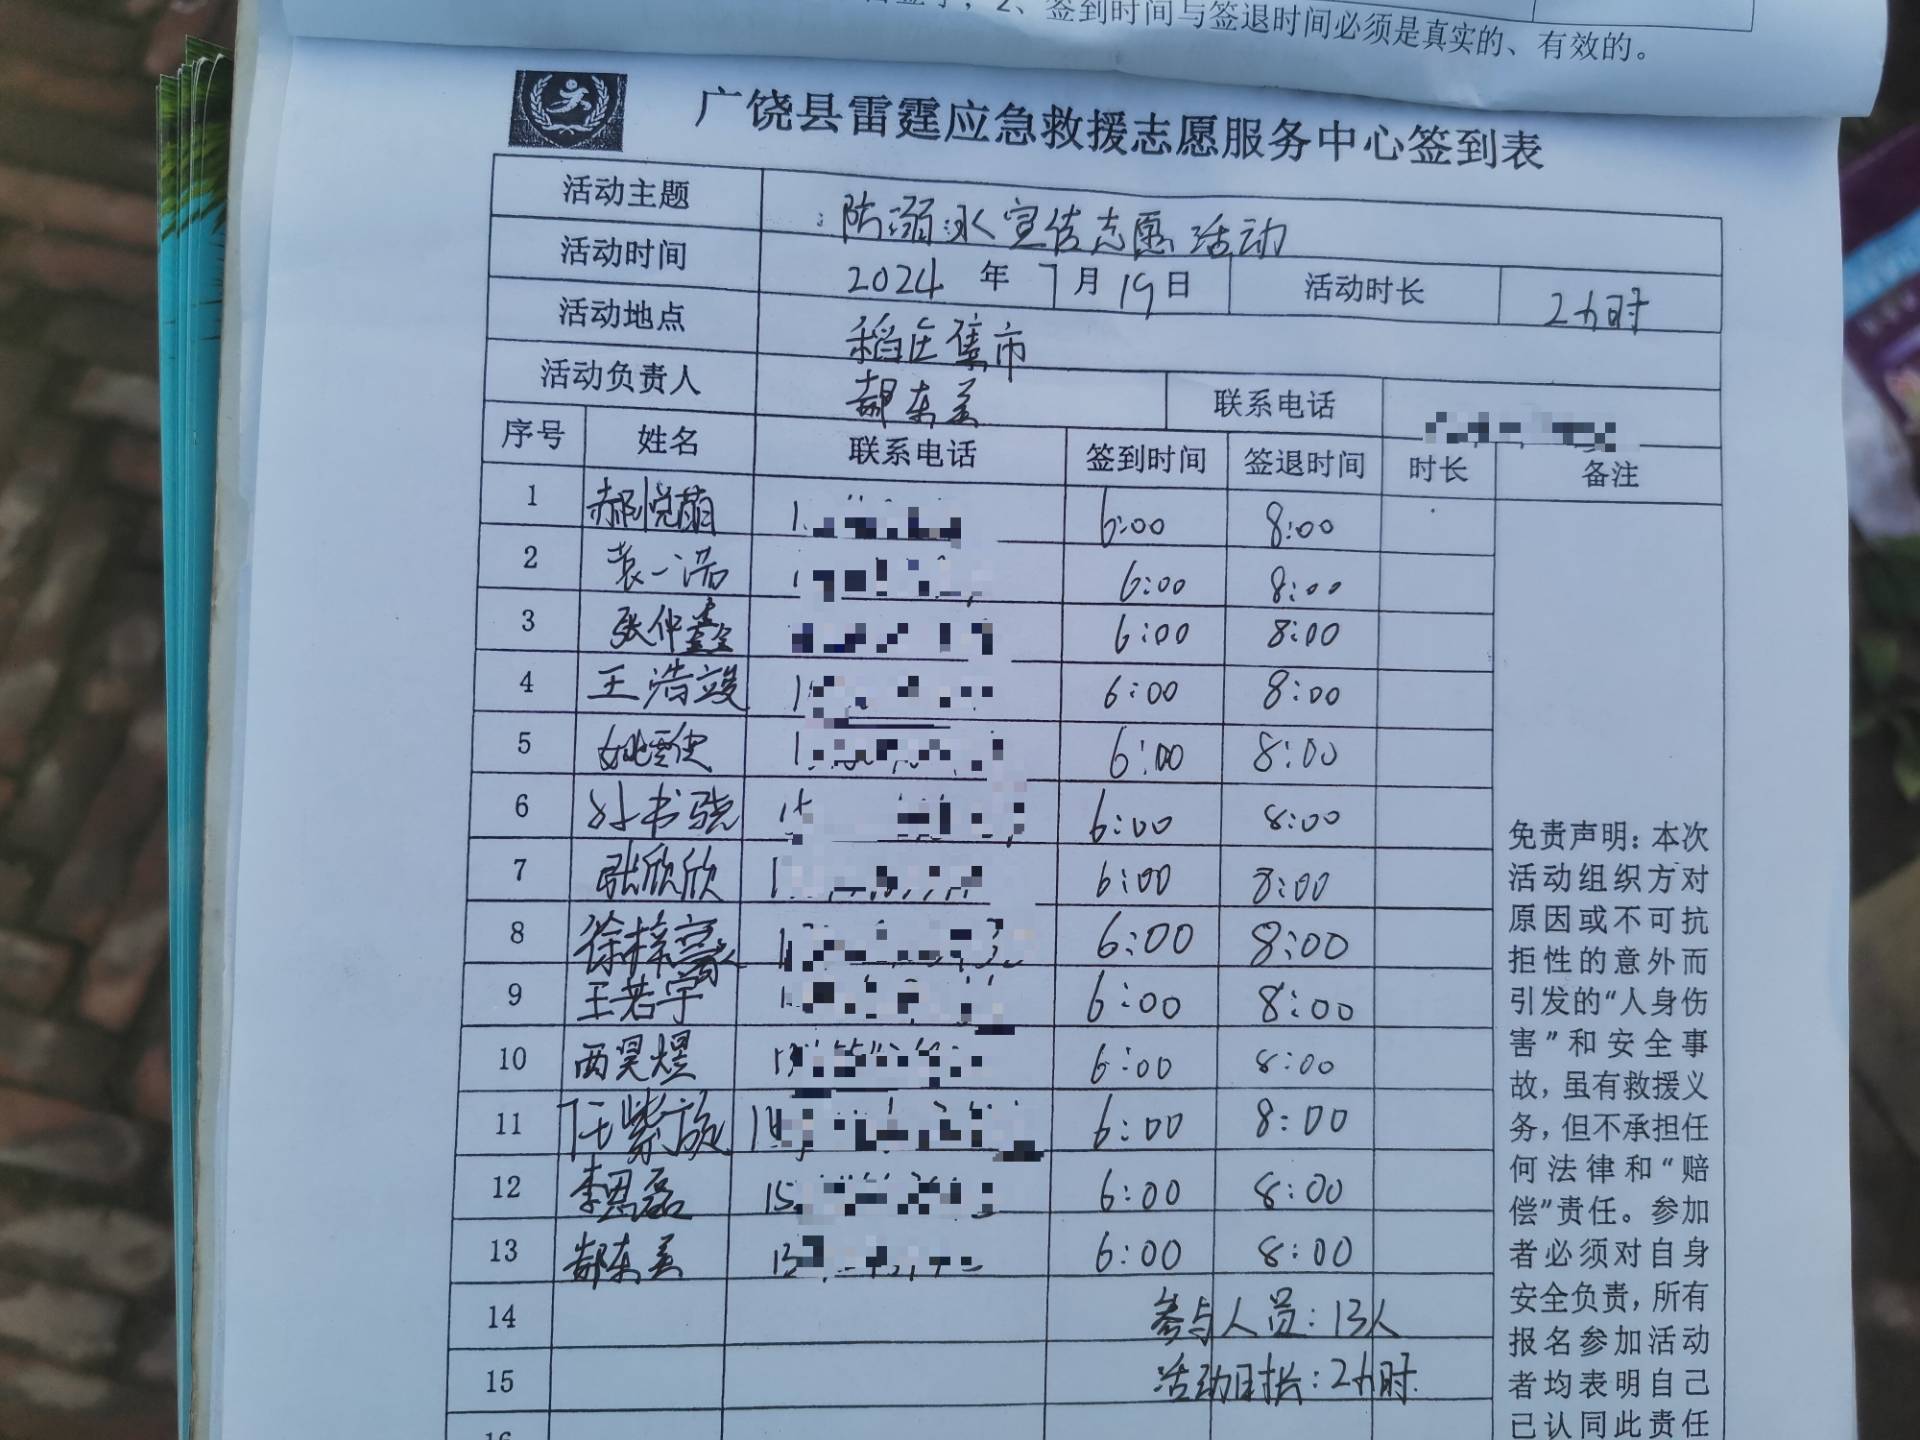 2、签到时间与签退时间必须是真实的、有效的。
广饶县雷霆应急救援志愿服务中心签到表
活动主题 防溺水宣传志愿活动
活动时间 2024 年 7 月 19 日 活动时长 2小时
活动地点 稻庄集市
活动负责人 郝东美 联系电话
序号 姓名 联系电话 签到时间 签退时间 时长 备注
1 郝悦萌 6:00 8:00
2 袁一浩 6:00 8:00
3 张仲鑫 6:00 8:00
4 王浩竣 6:00 8:00
5 6:00 8:00
6 孙书骁 6:00 8:00
7 张欣欣 6:00 8:00
8 徐梓豪 6:00 8:00
9 王若宇 6:00 8:00
10 西昊煜 6:00 8:00
11 任紫旋 6:00 8:00
12 李思磊 6:00 8:00
13 郝东美 6:00 8:00
14 参与人员:13人
15 活动时长:2小时
16
免责声明:本次
活动组织方对
原因或不可抗
拒性的意外而
引发的“人身伤
害”和安全事
故,虽有救援义
务,但不承担任
何法律和“赔
偿”责任。参加
者必须对自身
安全负责,所有
报名参加活动
者均表明自己
已认同此责任